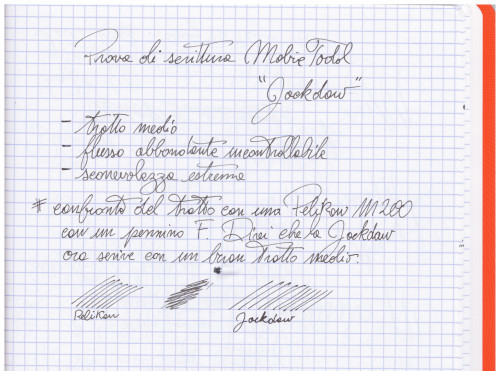 Prova di scrittura Mabie Todd
"Jackdaw"
- tratto medio
- flusso abbondante incontrollabile
- scorrevolezza estrema
# confronto del tratto con una Pelikan M200
con un pennino F. Direi che la Jackdaw
ora scrive con un buon tratto medio.
Pelikan Jackdaw